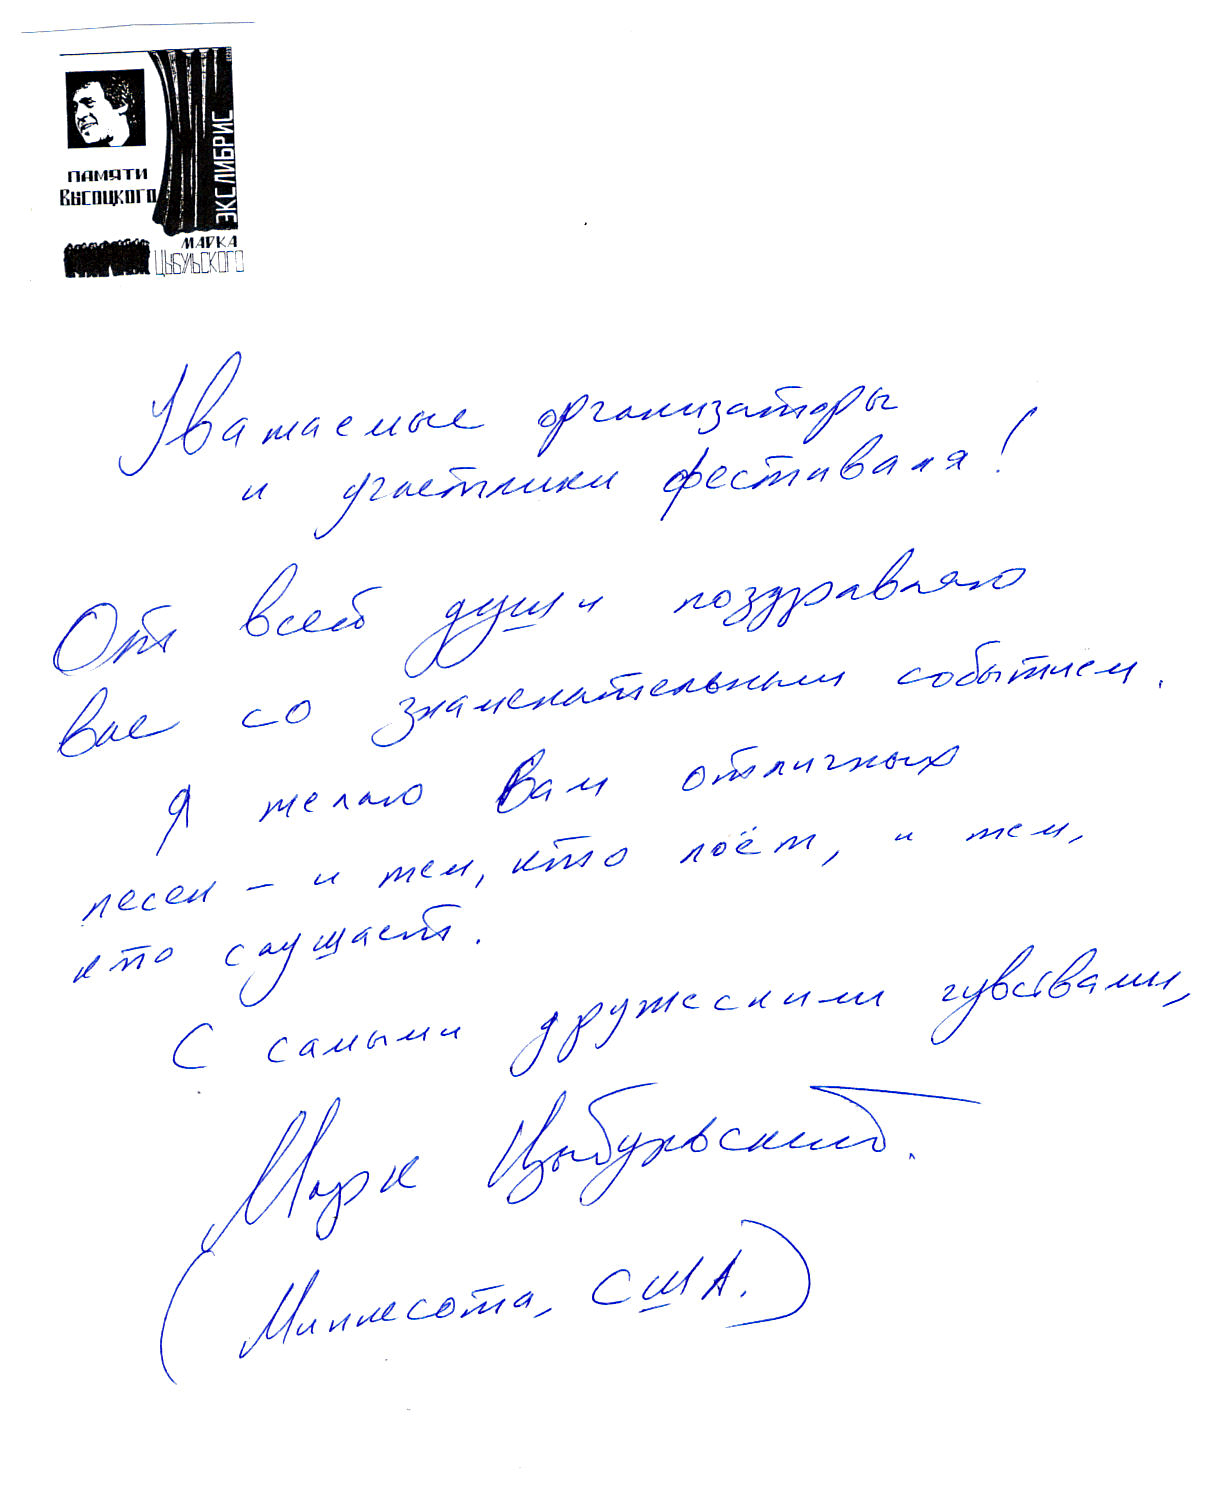 ПАМЯТИ
ВЫСОЦКОГО
ЭКСЛИБРИС
МАРКА
ЦЫБУЛЬСКОГО
Уважаемые организаторы
и участники фестиваля!
От всей души поздравляю
вас со знаменательным событием.
Я желаю Вам отличных
песен – и тем, кто поёт, и тем,
кто слушает.
С самыми дружескими чувствами,
Марк Цыбульский.
(Миннесота, США.)